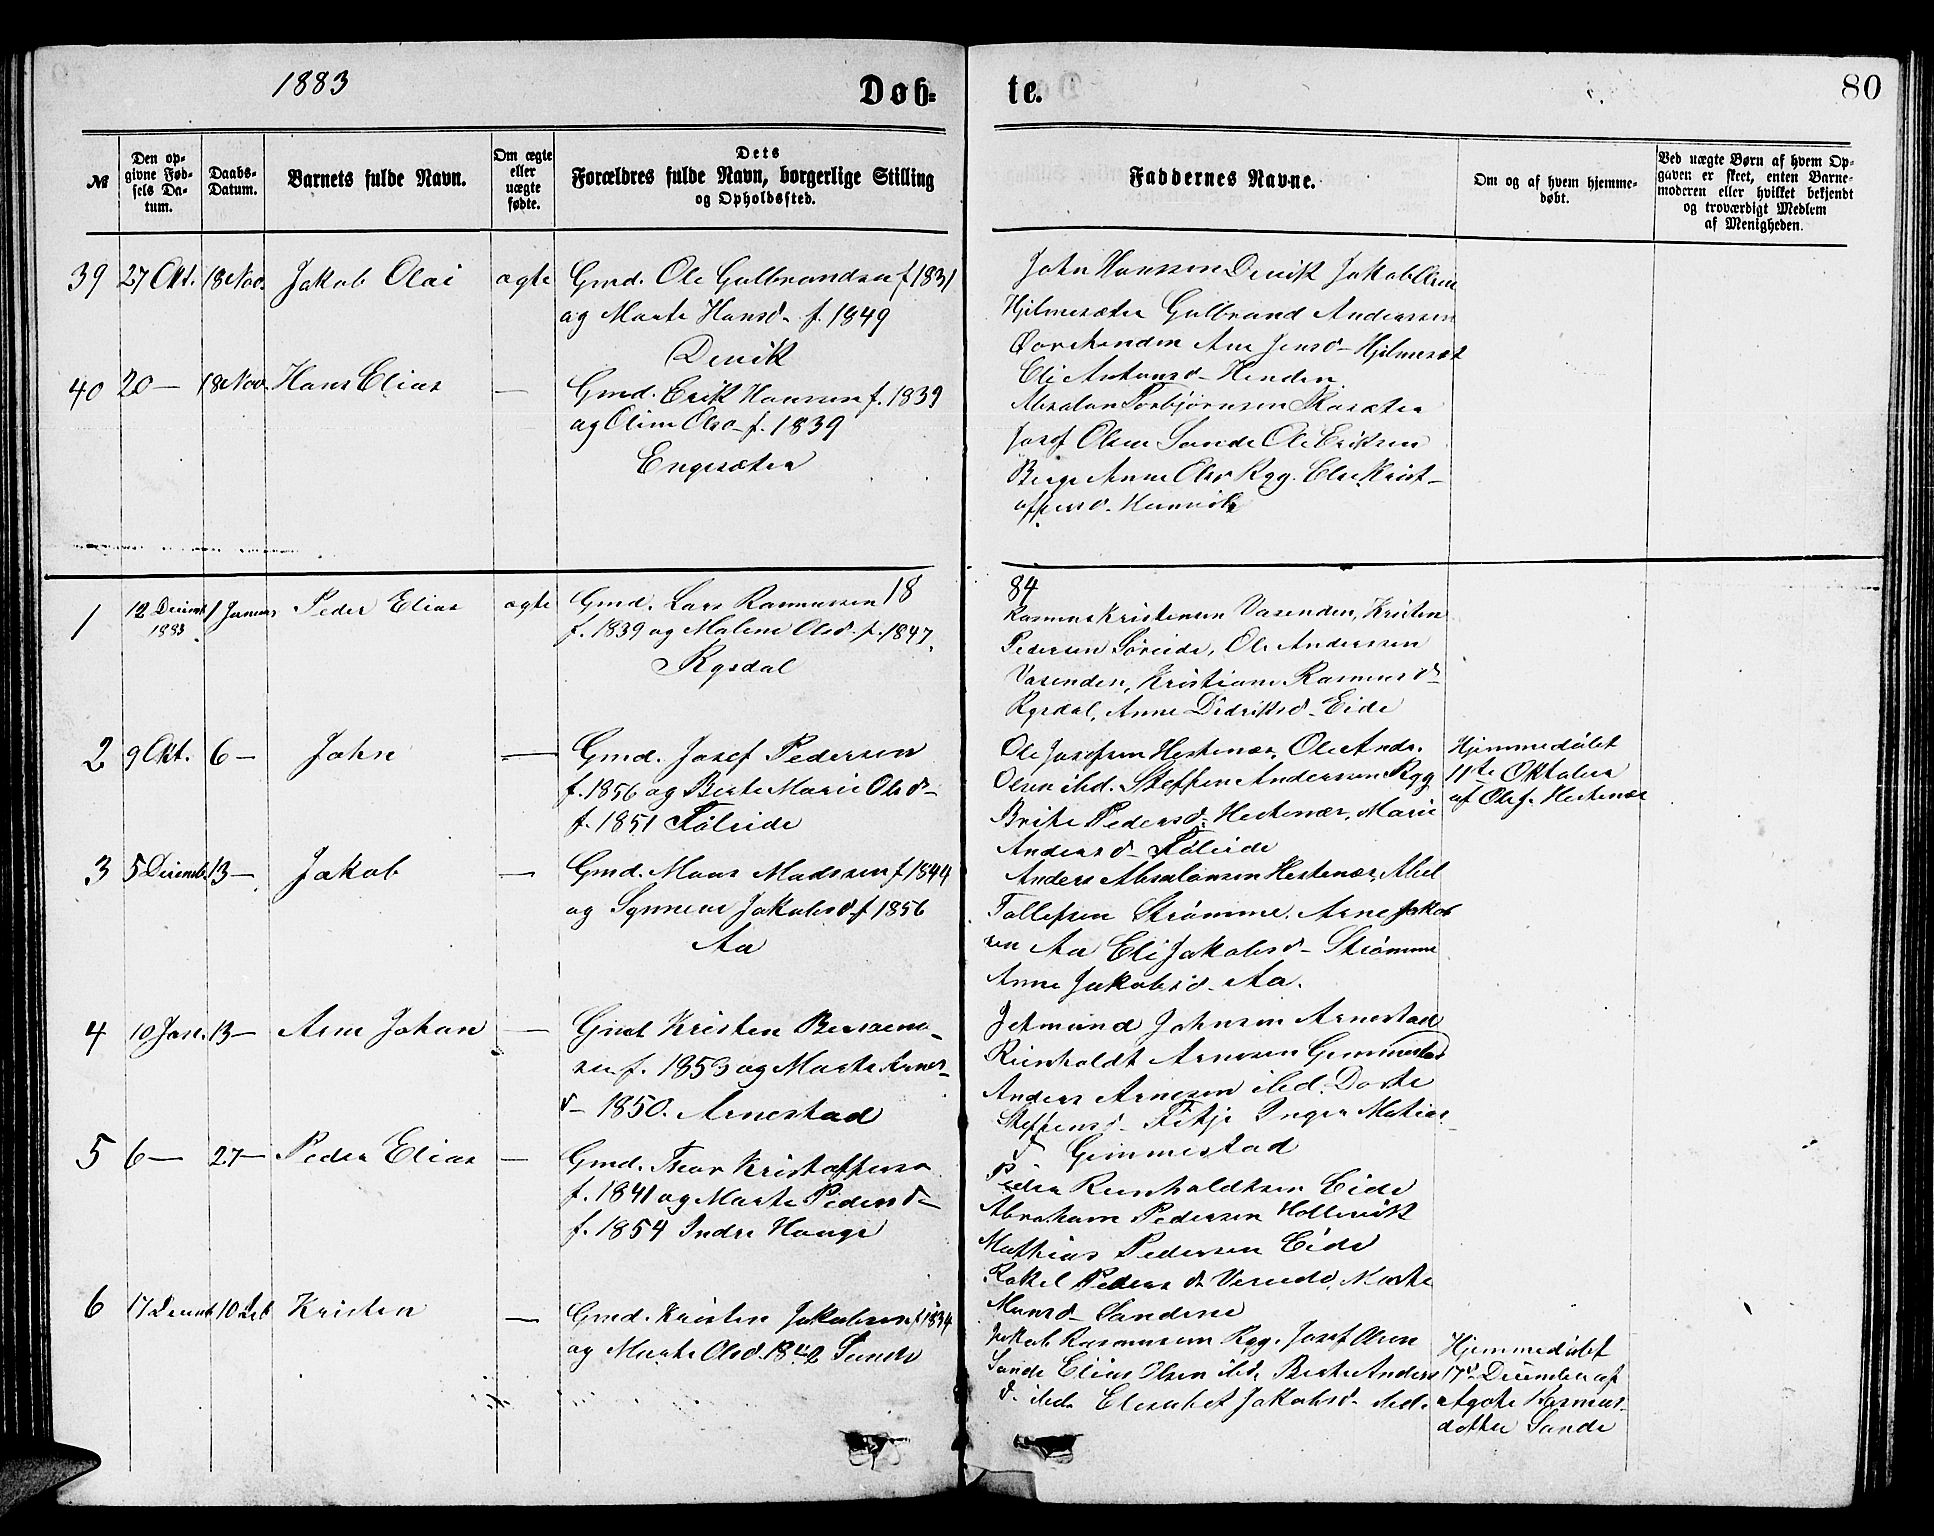 1883
Døb-
te.
80
№
Den op-
givne Fød-
sels Da-
tum.
Daabs-
Datum.
Barnets fulde Navn.
Om ægte
eller
uægte
fødte.
Dets
Forældres fulde Navn, borgerlige Stilling
og Opholdssted.
Faddernes Navne.
Om og af hvem hjemme-
døbt.
Ved uægte Børn af hvem Op-
gaven er skeet, enten Barne-
moderen eller hvilket bekjendt
og troværdigt Medlem
af Menigheden.
39 27 Okt. 18 Nov. Jakob Olai ægte Gmd. Ole Gulbrandsen f 1831
og Marte Hansd- f. 1849
Devik
John Hanssen Devik Jakob Olsen
Hjelmesæter Gulbrand Anderssen
Ane Jensd- Hjelmesæt
Eli Antonsd- Henden
40 20 — 18 Nov. Hans Elias — Gmd. Erik Hanssen f. 1839
og Oline Olsd- f. 1839
Engesæter
Absalon Torbjørnsen
Josef Olsen Sande Ole Eriksen
Berge Anne Olsd Ryg. Else Krist-
offersd- Hennvik
18
84
1 12 Decemb 1 Januar Peder Elias ægte Gmd. Lars Rasmussen
1883.
f. 1839 og Malene Olsd- f. 1847.
Rysdal
Rasmus Kristensen Vasenden, Kristen
Pedersen Søreide, Ole Anderssen
Vasenden, Kristiane Rasmusd-
Rysdal, Anne Didriksd- Eide
2 9 Okt. 6 — John — Gmd. Josef Pedersen
f. 1856 og Berte Marie Olsd-
f. 1851 Føleide
Ole Josefsen Hestenær, Ole Andr.
Olsen ibd. Steffen Anderssen Ryg
Brite Pedersd- Hestenær, Marie
Andersd- Føleide
Hjemmedøbt
11te Oktober
af Ole J. Hestenær
3 5 Decemb. 13 — Jakob — Gmd. Mons Madssen f 1844
og Synneve Jakobsd- f 1856
Aa
Anders Absalonsen Hestenær, Abel
Tollefsen Strømme, Arne Jakob
sen Aa Eli Jakobsd- Strømme
Anne Jakobsd- Aa.
4 10 Jan. 13 — Arne Johan — Gmd Kristen
sen f. 1853 og Marte Arnes-
d- 1850. Arnestad
Jetmund Johnsen Arnestad
Reinholdt Arnesen Gimmestad
Anders Arnesen ibid. Dorte
Steffensd- Fitje Inger Matias
d- Gimmestad
5 6 — 27 — Peder Elias — Gmd. Kristoffersen
f. 1841 og Marte Pedersd-
f. 1854 Indre Hauge
Peder Reinholdtsen Eide
Abraham Pedersen Hollevik
Mathias Pedersen Eide
Rakel Pedersd- Vereide, Marte
Monsd- Sandene
6 17 Decemb 10 Feb Kristen — Gmd. Kristen Jakobsen f 1834
og Marte Olsd. 1842 Sande
Jakob Rasmussen Ryg. Josef Olsen
Sande Elias Olsen ibd. Berte Anders
d- ibd. Elisabet Jakobsd- ibd.
Hjemmedøbt
17d December af
Agate Rasmus-
dotter Sande